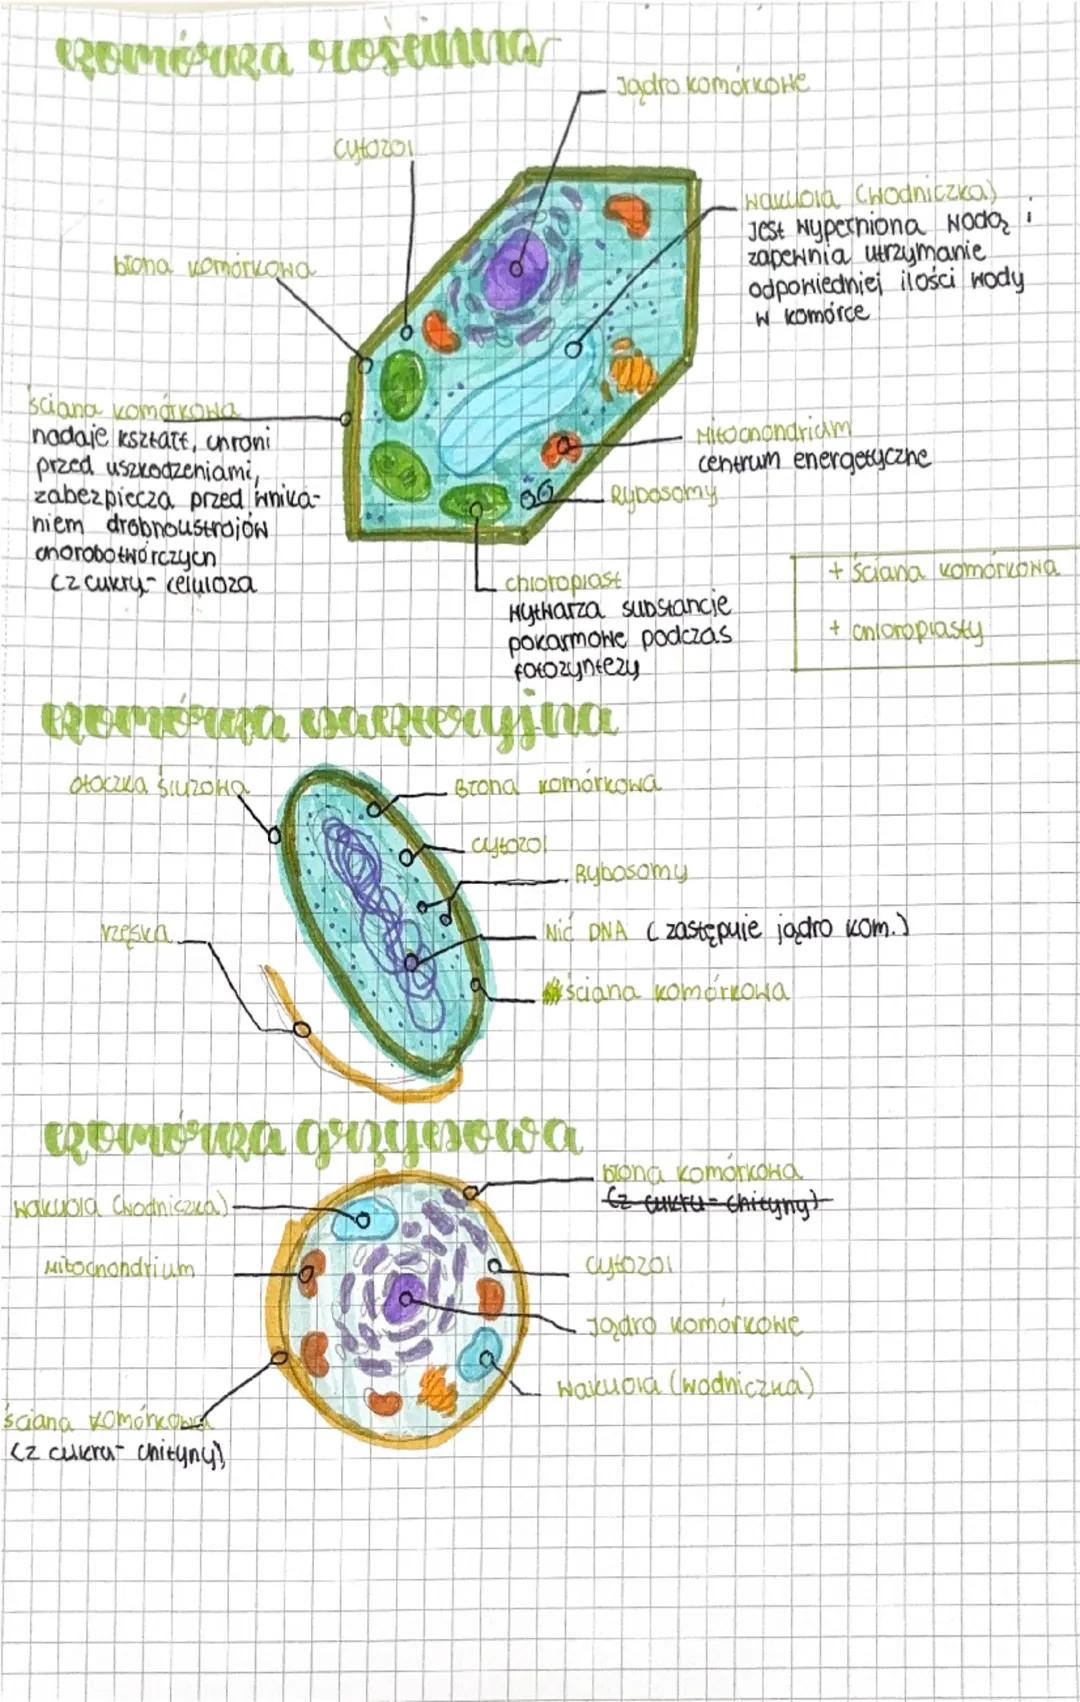 komórka roślinna
Jądro komórkowe
cytozol
błona komórkowa
wakuola (wodniczka)
Jest wypełniona wodą i
zapewnia utrzymanie
odpowiedniej ilości wody
w komórce
ściana komórkowa
nadaje kształt, chroni
przed uszkodzeniami,
zabezpiecza przed wnika-
niem drobnoustrojów
chorobotwórczych
(z cukry- celuloza
Mitochondrium
centrum energetyczne
Rybosomy
chloroplast
wytwarza substancje
pokarmowe podczas
fotozyntezy
+ ściana komórkowa
+ chloroplasty
komórka bakteryjna
otoczka śluzowa
Błona komórkowa
cytozol
Rybosomy
rzęska
Nić DNA (zastępuje jądro kom.)
ściana komórkowa
komórka grzybowa
błona komórkowa
(z cukru- chityny)
wakuola (wodniczka)
Mitochondrium
cytozol
Jądro komórkowe
wakuola (wodniczka)
ściana komórkowa
(z cukru- chityny)